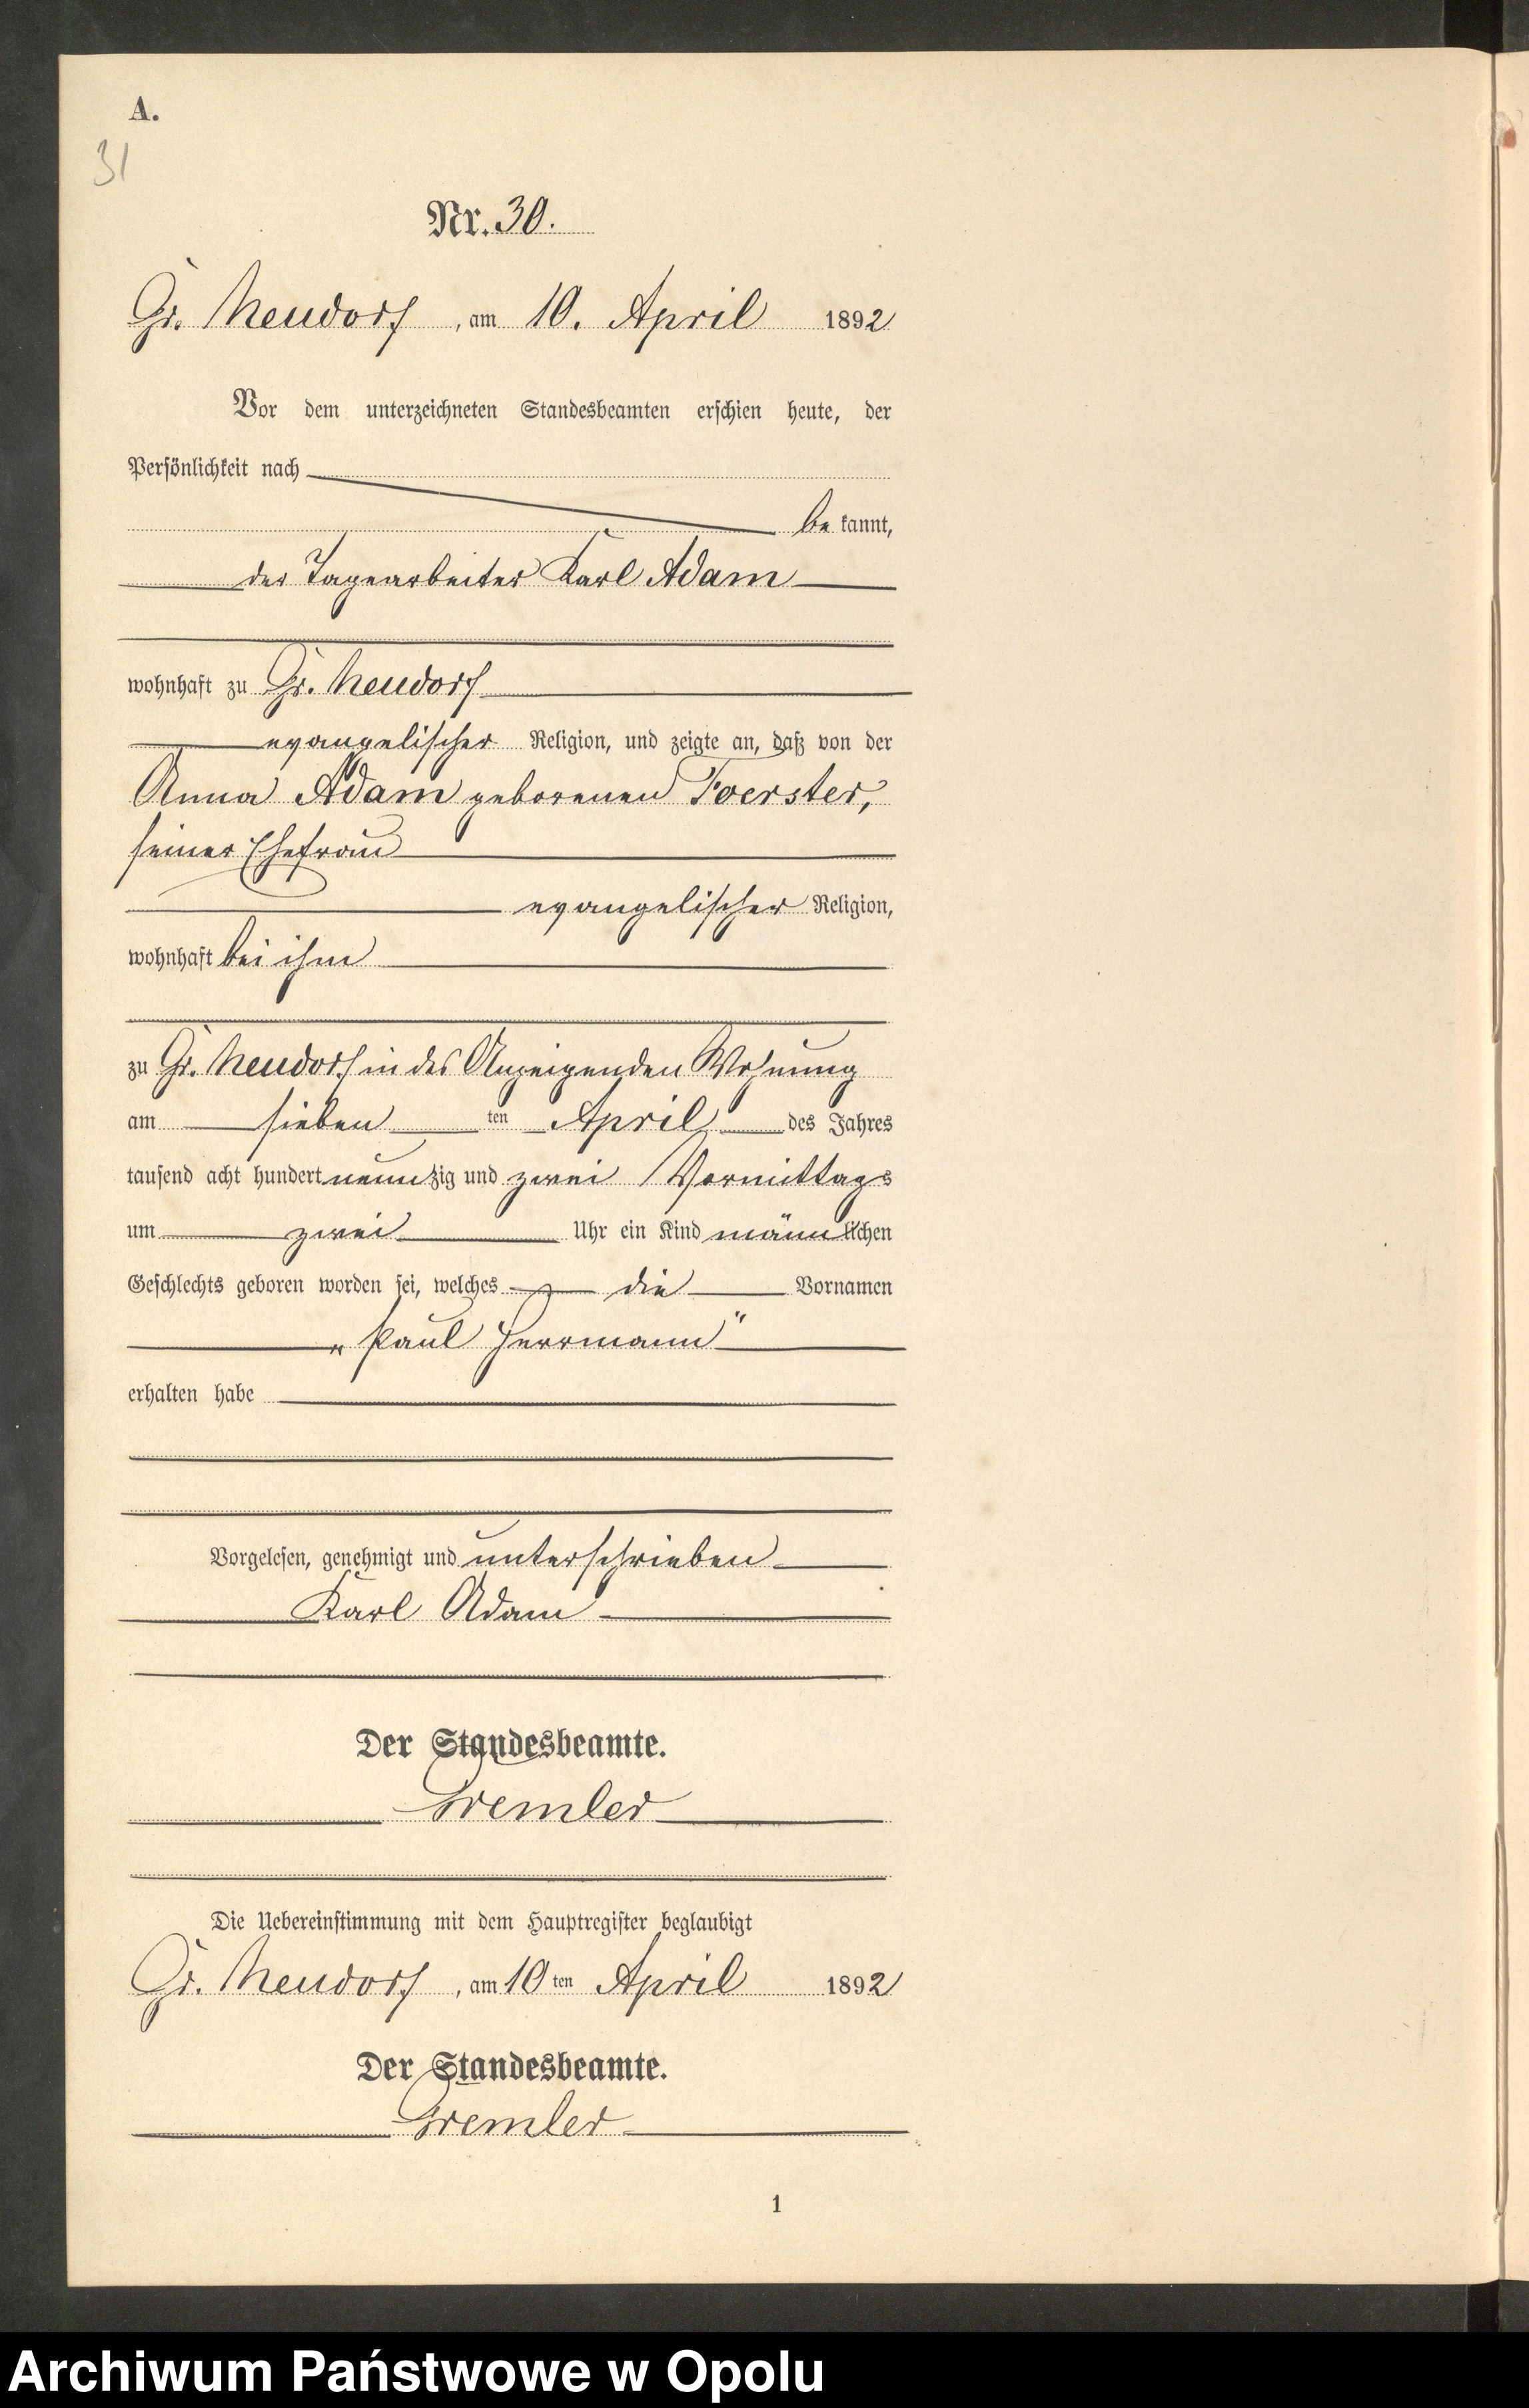 A.
31
Nr. 30.
Gr. Neudorf, am 10. April 1892
Vor dem unterzeichneten Standesbeamten erschien heute, der
Persönlichkeit nach
be kannt,
der Tagearbeiter Karl Adam
wohnhaft zu Gr. Neudorf
evangelischer Religion, und zeigte an, daß von der
Anna Adam geborenen Foerster,
seiner Ehefrau
evangelischer Religion,
wohnhaft bei ihm
zu Gr. Neudorf in des Anzeigenden Wohnung
am sieben ten April des Jahres
tausend acht hundert neun zig und zwei Vormittags
um zwei Uhr ein Kind männ lichen
Geschlechts geboren worden sei, welches die Vornamen
„Paul Herrmann"
erhalten habe
Vorgelesen, genehmigt und unterschrieben
Karl Adam
Der Standesbeamte.
Gremler
Die Uebereinstimmung mit dem Hauptregister beglaubigt
Gr. Neudorf, am 10 ten April 1892
Der Standesbeamte.
Gremler
1
Archiwum Państwowe w Opolu